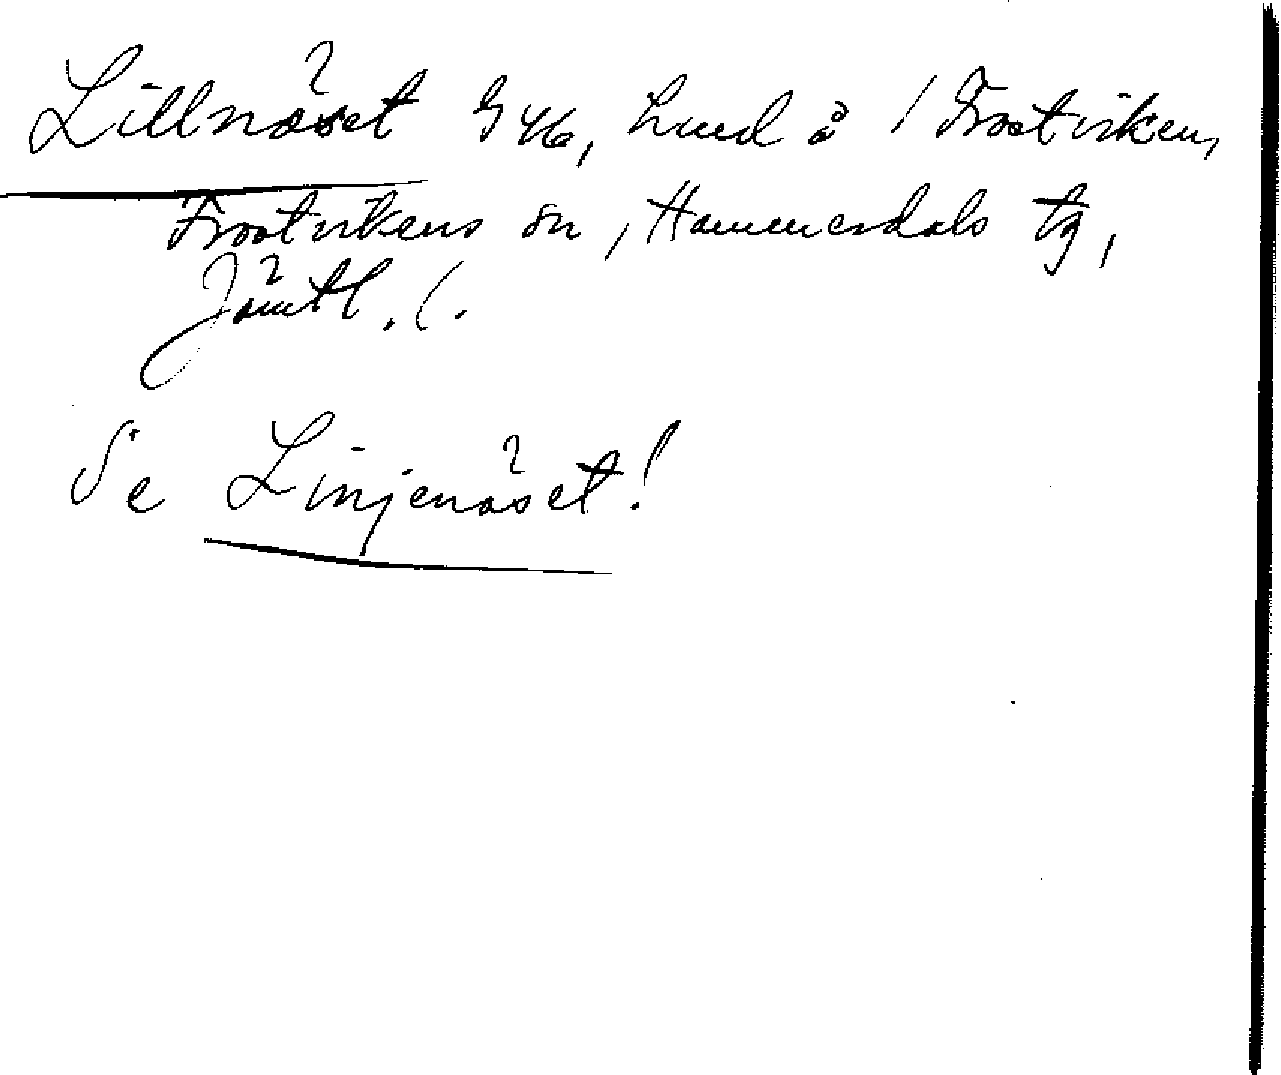 Lillnäset G46, hund å / Frostviken,
Frostvikens sn, Hammerdals tg,
Jämtl. l.
Se Linjenäset!